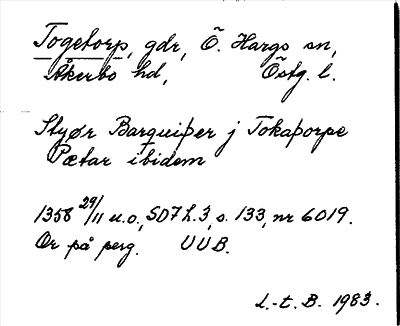 Togetorp, gdr, Ö. Hargs sn,
Åkerbo hd, Östg. l.
Styør Barquiþer j Tokaþorpe
Pætar ibidem
1358 29/11 u.o., SD7 h.3, s. 133, nr 6019.
Or på perg. UUB.
L.-t. B. 1983.